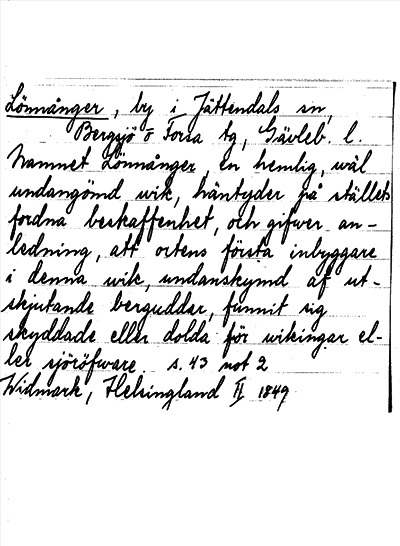 Lönnånger, by i Jättendals sn,
Bergsjö o Forsa tg, Gävleb. l.
Namnet Lönnånger, en hemlig, wäl
undangömd wik, häntyder på ställets
fordna beskaffenhet, och gifwer an-
ledning, att ortens första inbyggare
i denna wik, undanskymd af ut-
skjutande berguddar, funnit sig
skyddade eller dolda för wikingar el-
ler sjöröfware. s. 43 not 2
Widmark, Helsingland II 1849